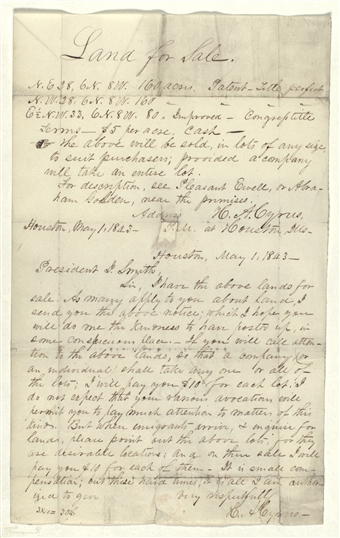 Land for Sale.
N.E 28, 6 N. 8 W. 160 acres. Patent-Title perfect
N.W. 28. 6 N. 8 W. 160 - - - -
E½ N.W. 33, 6 N. 8 W. 80. Improved - title
Terms - $5 per acre. Cash -
the above will be sold, in lots of any size
to suit purchasers; provided a company
will take an entire lot.
For description, see Pleasant Ewell, or Abra-
ham Golden, near the premises.
Address H. A. Cyrus,
Houston, May 1, 1843 - P.M. at Houston, Ills-
Houston, May 1. 1843 -
President J. Smith,
Sir, I have the above lands for
sale. As many apply to you about land, I
send you the above notice; which I hope you
will do me the kindness to have posted up, in
some conspicuous place. - If you will call atten-
tion to the above lands, so that a company (or
an individual) shall take any one or all of
the lots; I will pay you $10 for each lot. I
do not expect that your various avocations will
permit you to pay much attention to matters of this
kind. But when emigrants arrive, & enquire for
lands, please point out the above lots; for they
are desirable locations; and on their sale I will
pay you $10 for each of them - It is small com-
pensation; but these hard times, it is all I am author-
ized to give Very respectfully
H. A. Cyrus -